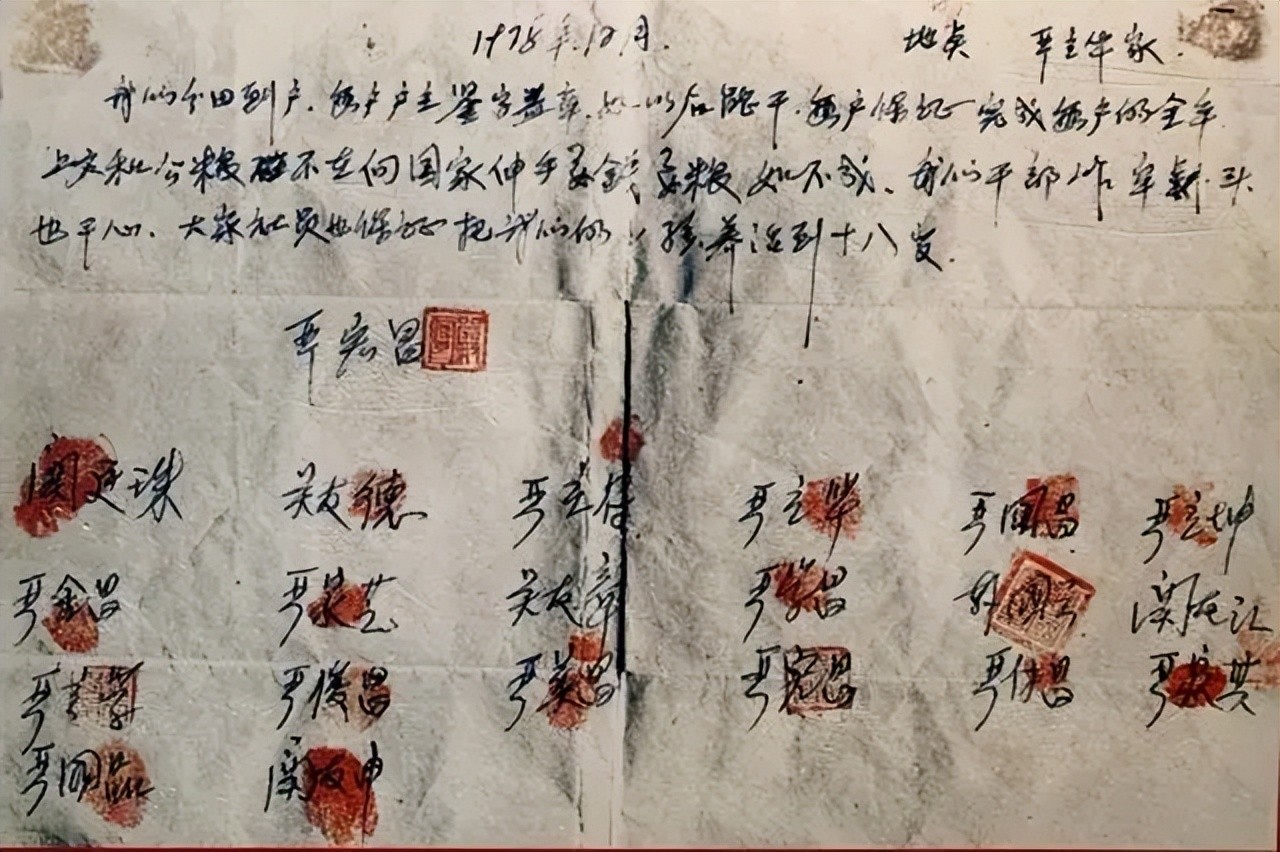 1978年12月. 地点 严立华家.
我们分田到户.每户户主签字盖章.如以后能干.每户保证完成每户的全年
上交和公粮不在向国家伸手要钱要粮如不成.我们干部作牢刹头
也干心.大家社员也保证把我们的小孩养活到十八岁.
严宏昌
关廷珠 关友德 严立符 严立华 严国昌 严立坤
严金昌 严家芝 关友章 严学昌 韩国云 关友江
严立学 严俊昌 严美昌 严宏昌 严付昌 严家其
严国品 关友申